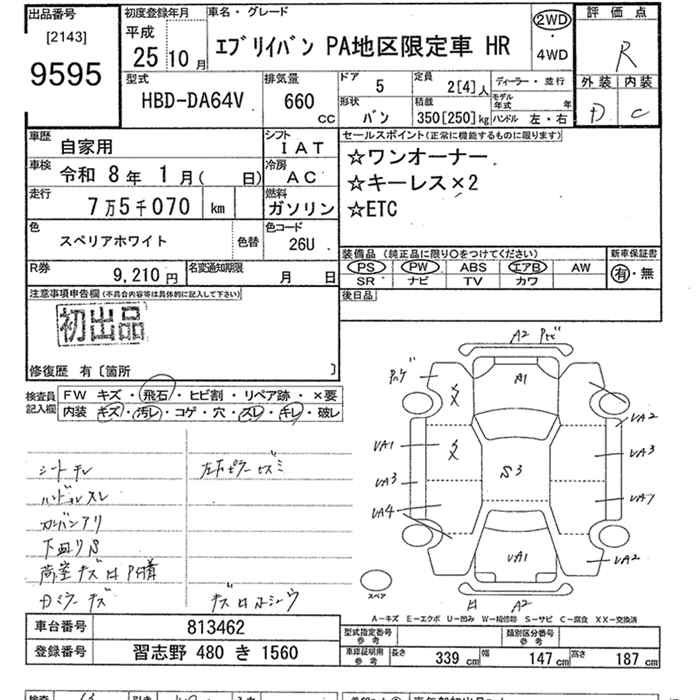 出品番号
[2143]
9595
初度登録年月
平成
25 10 月
車名・グレード
エブリイバン PA地区限定車 HR
2WD
・
4WD
評価点
R
外装 内装
D C
型式
HBD-DA64V
排気量
660 cc
ドア
5
定員
2[4]人
ディーラー・並行
形状
バン
積載
350[250]kg
モデル年式 年
ハンドル 左・右
車歴
自家用
シフト
IAT
車検
令和 8年 1月( 日)
冷房
AC
走行
7万5千070 km
燃料
ガソリン
色
スペリアホワイト
色替
色コード
26U
R券
9,210円
名変通知期限
月 日
セールスポイント(正常に機能するものに限ります)
☆ワンオーナー
☆キーレス×2
☆ETC
装備品 (純正品に限り○をつけてください)
PS PW ABS エアB AW
SR ナビ TV カワ
新車保証書
有・無
後日品
注意事項申告欄(不具合内容等は具体的に記入して下さい)
初出品
修復歴 有〔箇所 〕
検査員記入欄
FW キズ・飛石・ヒビ割・リペア跡・×要
内装 キズ・汚レ・コゲ・穴・スレ・キレ・破レ
シートキレ
ハンドルスレ
カンバンアリ
下廻りS
荷室キズ
Dミラーキズ
A2
A1
S3
UA1
UA3
UA4
UA2
UA3
UA7
UA2
UA1
A2
スペア
A-キズ E-エクボ U-凹み W-補修跡 S-サビ C-腐食 XX-交換済
車台番号
813462
登録番号
習志野 480 き 1560
型式指定番号
参考
類別区分番号
参考
車庫証明用
参考
長さ 339 cm 幅 147 cm 高さ 187 cm